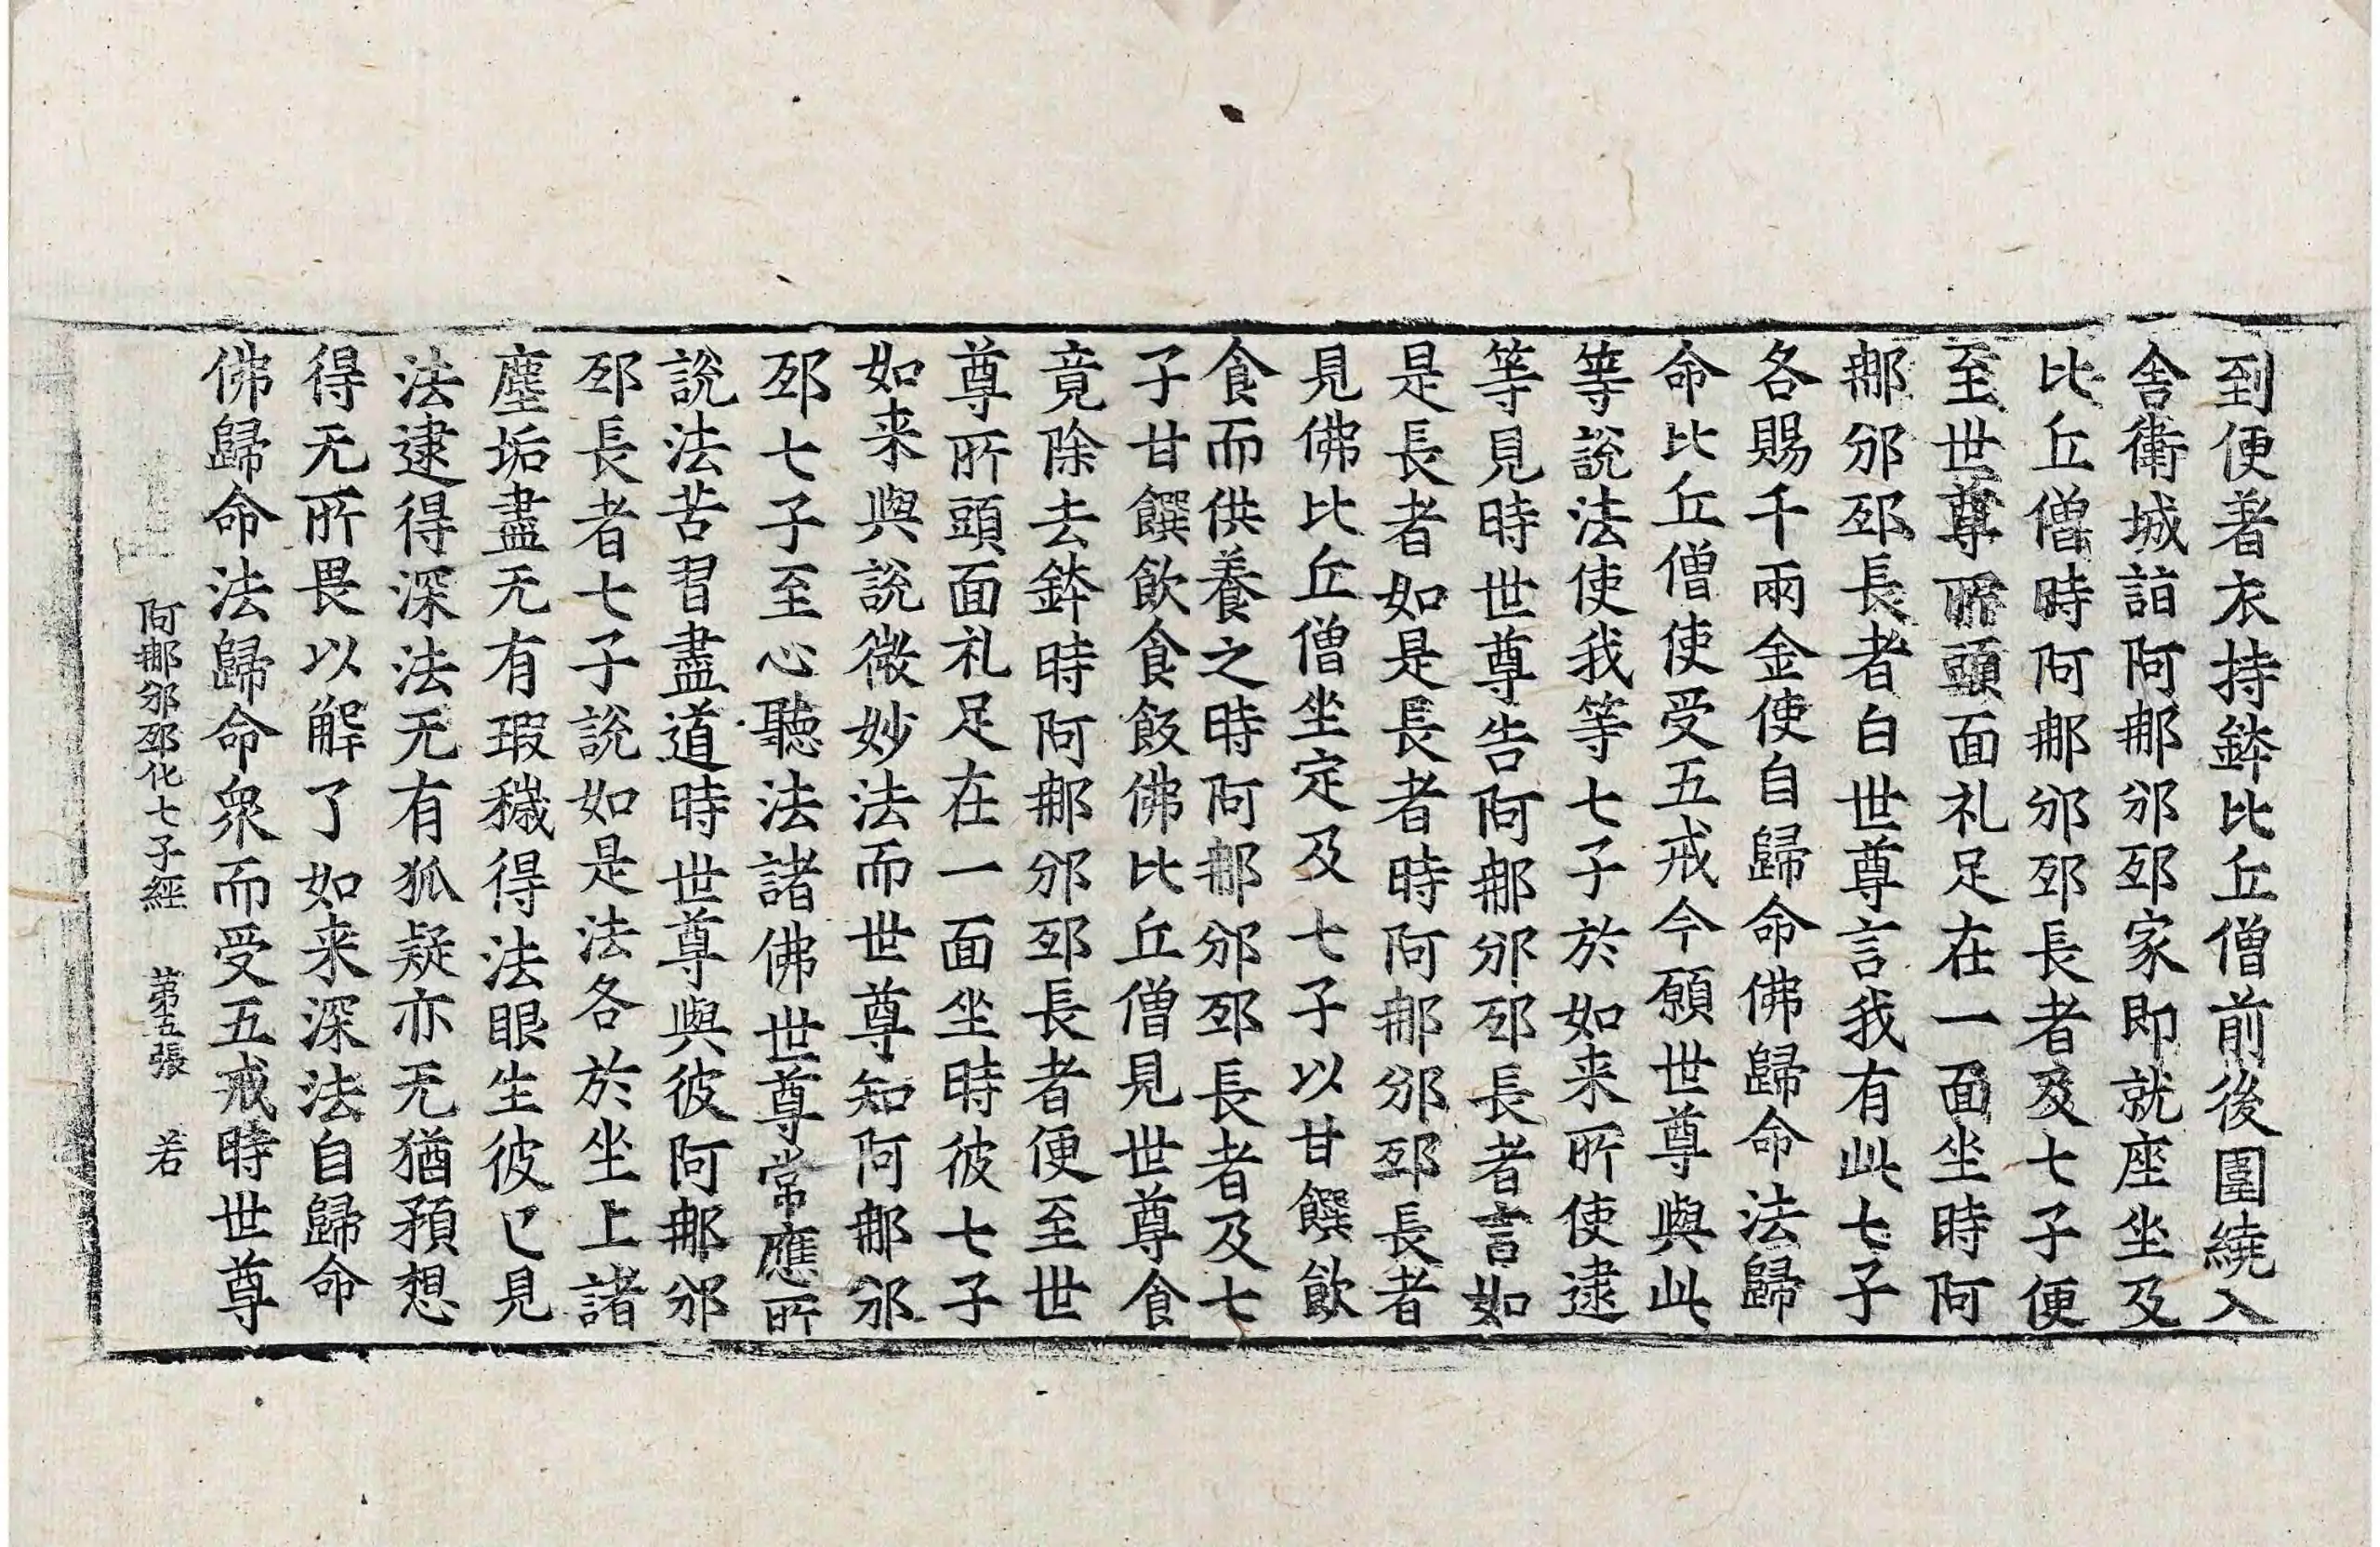 到便著衣持鉢比丘僧前後圍繞入
舍衛城詣阿𨚗邠邳家即就座坐及
比丘僧時阿𨚗邠邳長者及七子便
至世尊所頭面礼足在一面坐時阿
𨚗邠邳長者白世尊言我有此七子
各賜千兩金使自歸命佛歸命法歸
命比丘僧使受五戒今願世尊與此
等說法使我等七子於如来所使逮
等見時世尊告阿𨚗邠邳長者言如
是長者如是長者時阿𨚗邠邳長者
見佛比丘僧坐定及七子以甘饌飲
食而供養之時阿𨚗邠邳長者及七
子甘饌飲食飯佛比丘僧見世尊食
竟除去鉢時阿𨚗邠邳長者便至世
尊所頭面礼足在一面坐時彼七子
如来與說微妙法而世尊知阿𨚗邠
邳七子至心聽法諸佛世尊常應所
說法苦習盡道時世尊與彼阿𨚗邠
邳長者七子說如是法各於坐上諸
塵垢盡无有瑕穢得法眼生彼已見
法逮得深法无有狐疑亦无猶預想
得无所畏以解了如来深法自歸命
佛歸命法歸命衆而受五戒時世尊
阿𨚗邠邳化七子經 苐五張 若